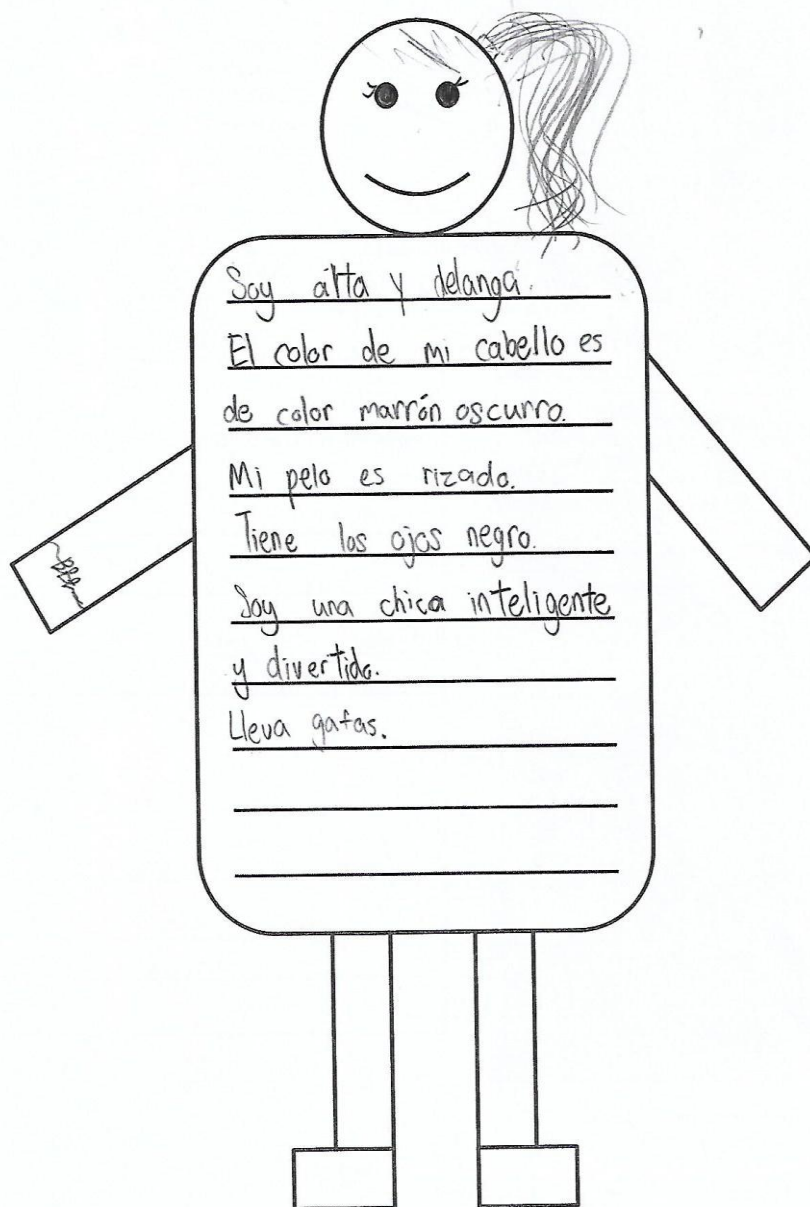 Soy álta y delanga.
El color de mi cabello es
de color marrón oscurro.
Mi pelo es rizado.
Tiene los ojos negro.
Soy una chica inteligente
y divertida.
Lleva gafas.